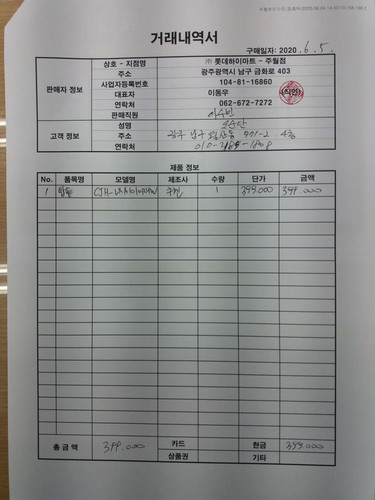 거래내역서
구매일자: 2020. 6. 5.
판매자 정보
상호 - 지점명 ㈜ 롯데하이마트 - 주월점
주소 광주광역시 남구 금화로 403
사업자등록번호 104-81-16860
대표자 이동우 (직인)
연락처 062-672-7272
판매직원
고객 정보
성명
주소 광주 남구
연락처
제품 정보
No. 품목명 모델명 제조사 수량 단가 금액
1 쿠첸 1 399.000 399.000
총 금 액 399.000 카드 현금 399.000
상품권 기타